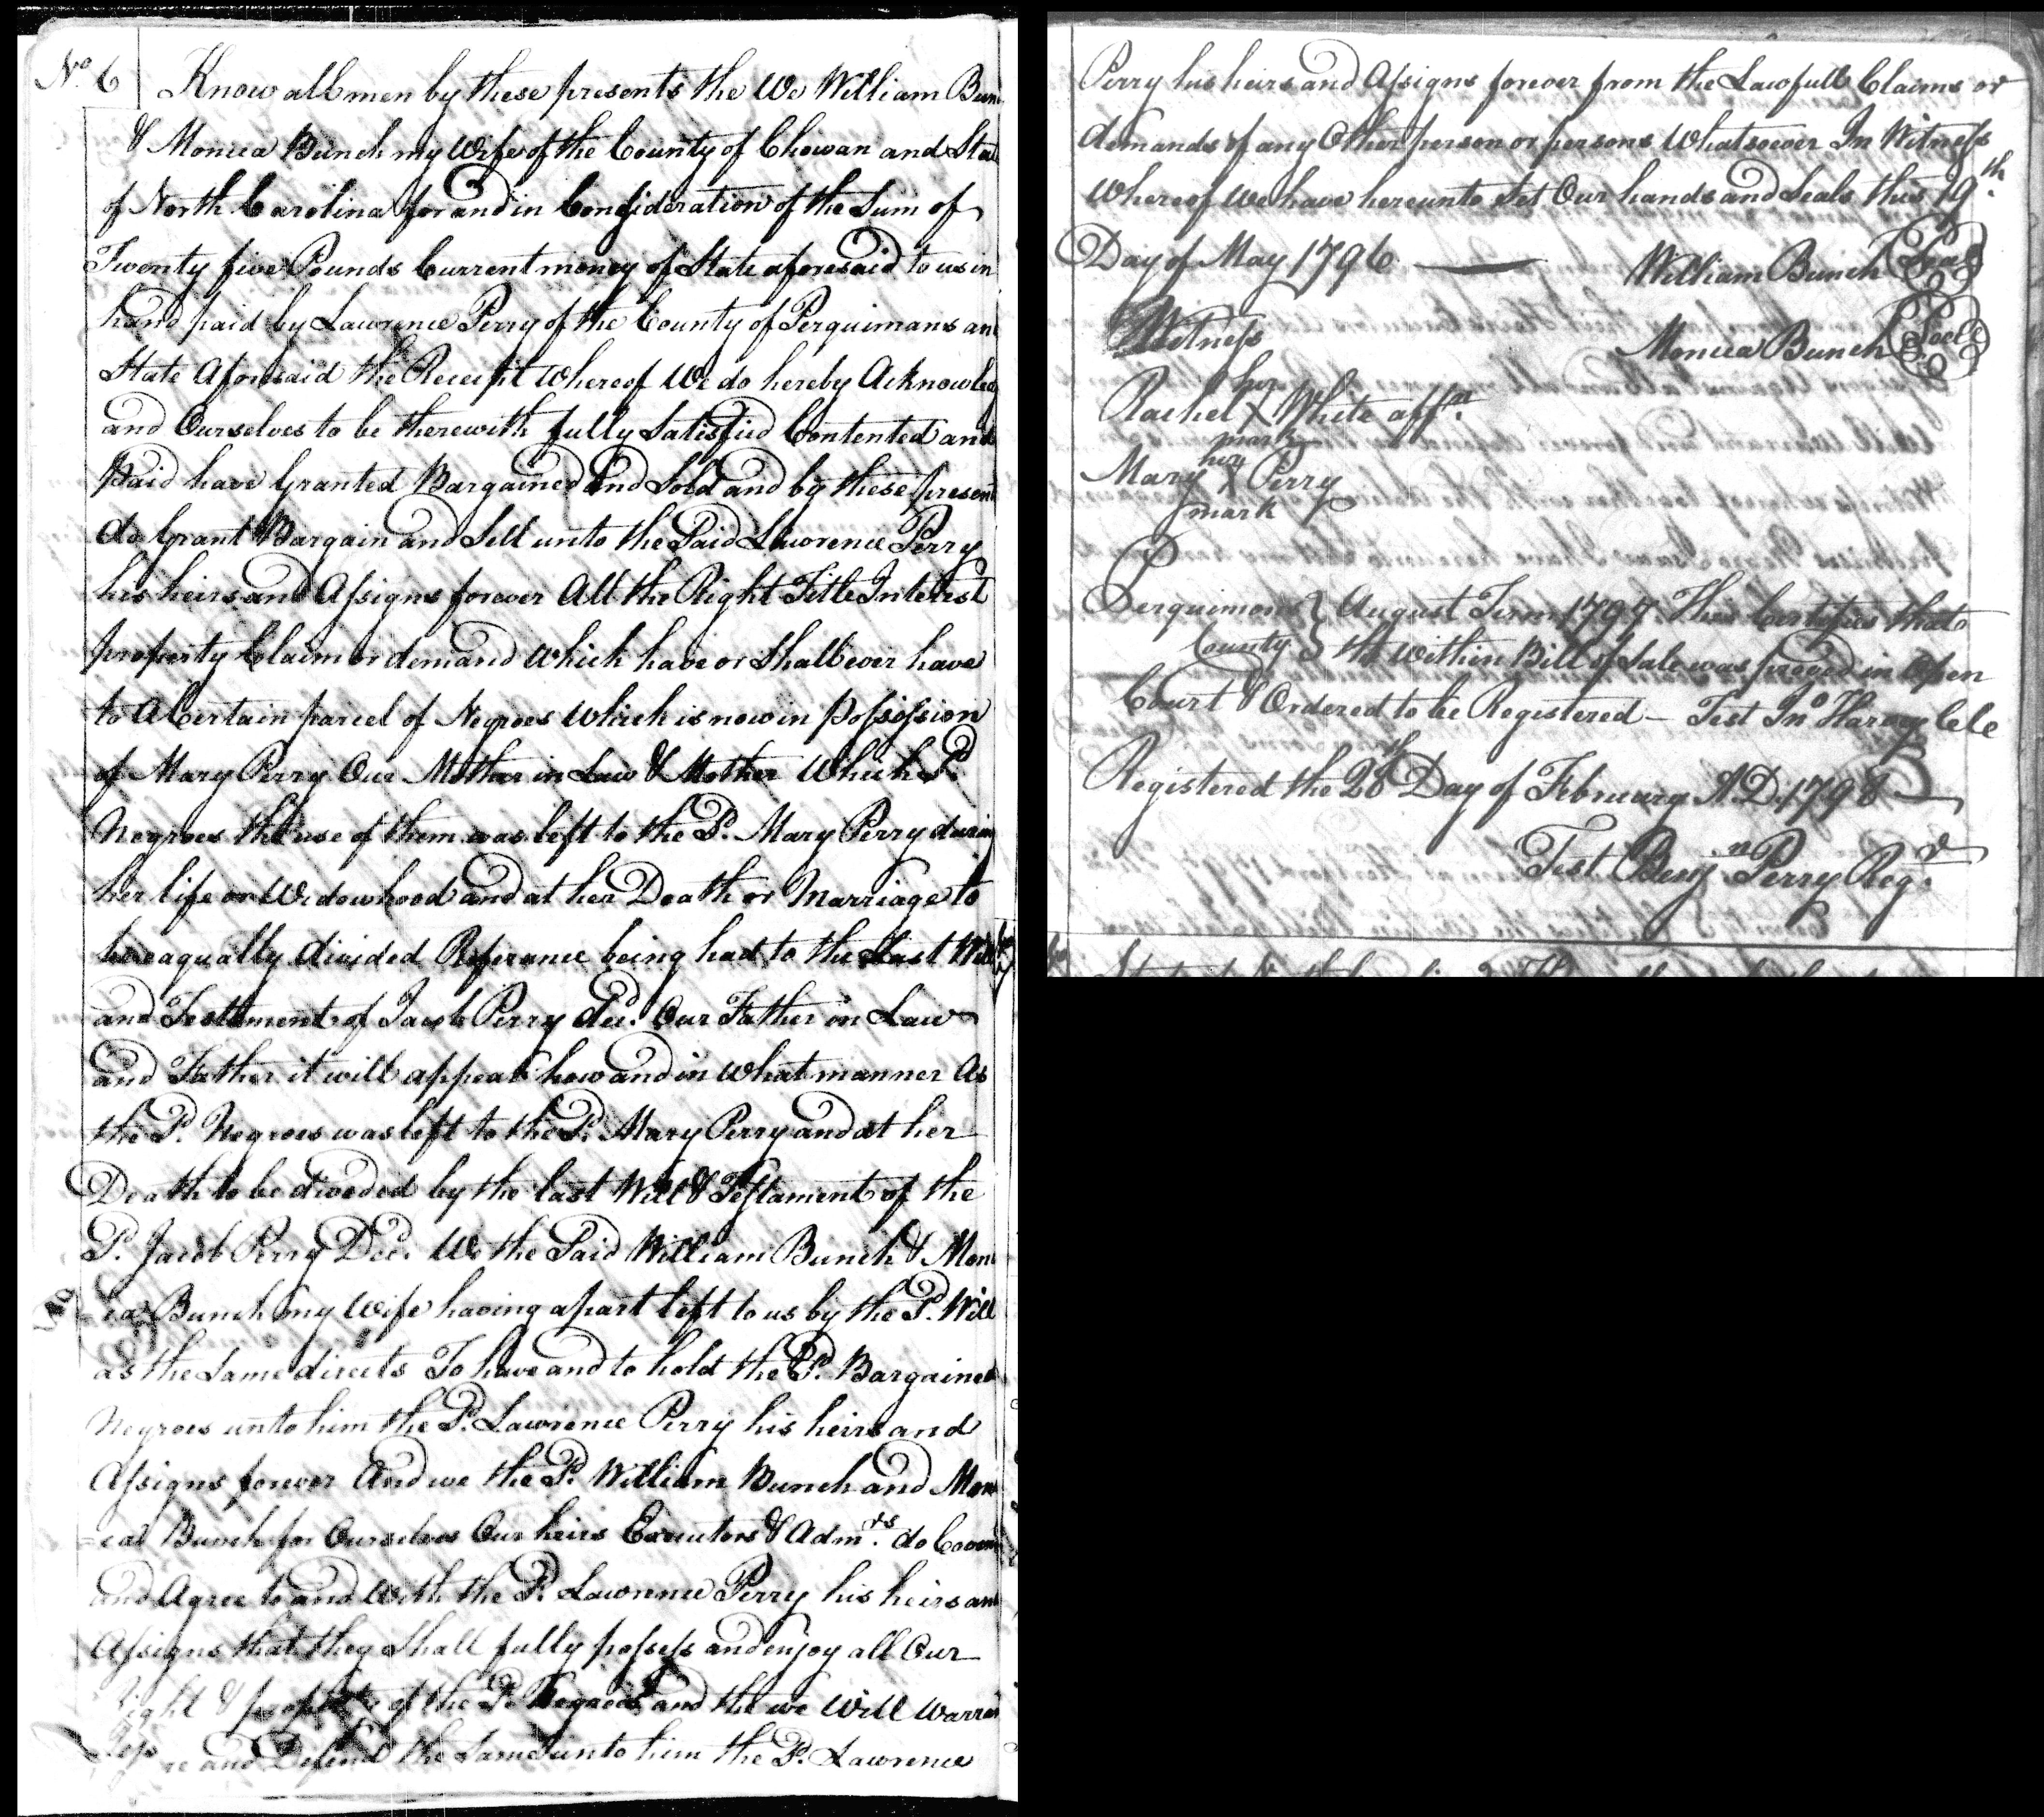 No. 6
Know all men by these presents the We William Bun
& Monica Bunch my Wife of the County of Chowan and Sta
of North Carolina for and in Consideration of the Sum of
Twenty five Pounds Current money of State aforesaid to us in
hand paid by Lawrence Perry of the County of Perquimans an
State Aforesaid the Receipt Whereof We do hereby Acknowled
and Ourselves to be therewith fully Satisfied Contented and
Paid have Granted Bargained and Sold and by these present
do Grant Bargain and Sell unto the Said Lawrence Perry
his heirs and Assigns forever All the Right Title Interest
property Claim or demand Which have or Shall ever have
to A Certain parcel of Negroes Which is now in possession
of Mary Perry Our Mother in Law & Mother Which Sd.
Negroes the use of them was left to the Sd. Mary Perry durin
her life or Widowhood and at her Death or Marriage to
be eaqually divided Referance being had to the Last Will
and Testament of Jacob Perry decd. Our Father in Law
and Father it will appear how and in What manner As
the Sd. Negroes was left to the Sd. Mary Perry and at her
Death to be divided by the last Will & Testament of the
Sd. Jacob Perry Decd. We the Said William Bunch & Mon
ica Bunch my Wife having a part left to us by the Sd. Will
as the Same directs To have and to hold the Sd. Bargained
Negroes unto him the Sd. Lawrence Perry his heirs and
Assigns forever And we the Sd. William Bunch and Mon
=ica Bunch for Ourselves Our heirs Executors & Admrs. do Coven
and Agree to and With the Sd. Lawrence Perry his heirs an
Assigns that they Shall fully possess and enjoy all Our
right & property of the Sd. Negroes and the we Will Warran
and Defend the Same unto him the Sd. Lawrence
Perry his heirs and Assigns forever from the Lawfull Claims or
demands of any Other person or persons Whatsoever In Witness
Whereof We have hereunto Set Our hands and Seals this 19th.
Day of May 1796 — William Bunch Seal
Witness Monica Bunch Seal
her
Rachel X White affn.
mark
her
Mary X Perry
mark
Perquimons } August Term 1797. This Certifies that
County } the Within Bill of Sale was proved in Open
Court & Ordered to be Registered – Test Jno Harvey Clc
Registered the 28th Day of February A.D. 1798
Test Benjn Perry Regr.